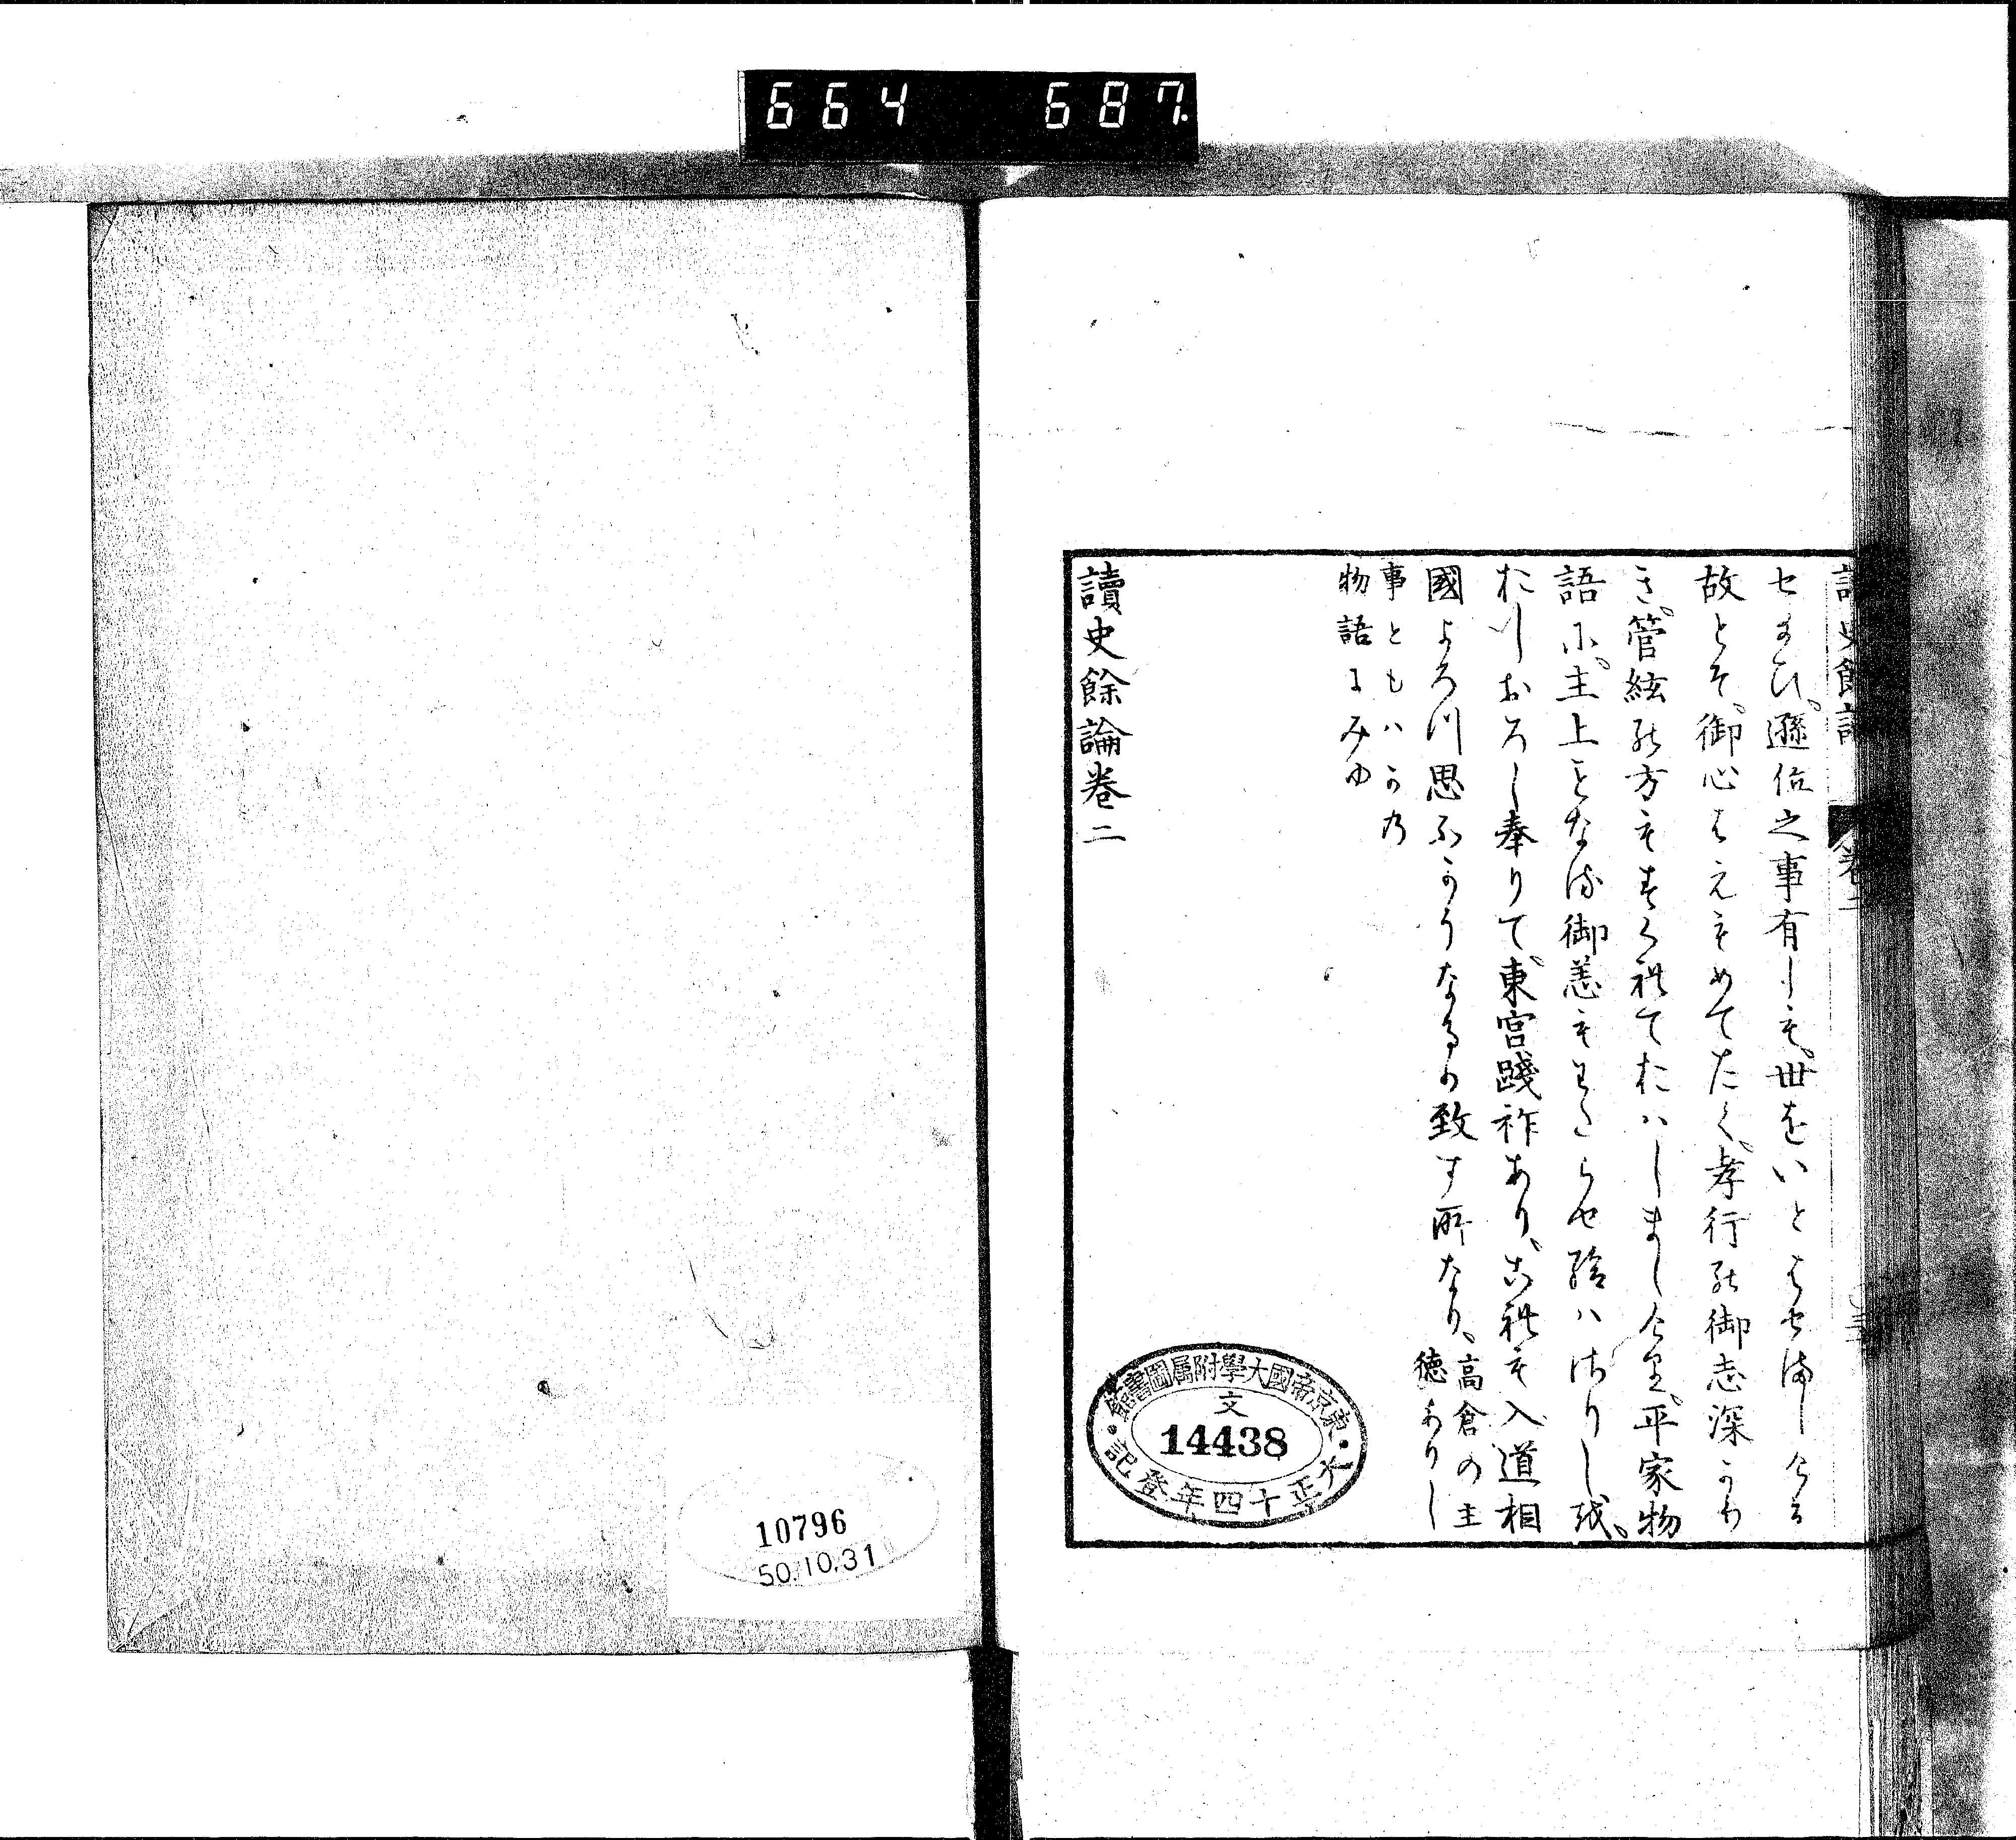 664 687
讀史餘論 卷二
セまひ、遜位之事有しも、世をいとはせ給しける
故とそ、御心はえもめてたく、孝行の御志深かり
き、管絃の方もすくれておはしましけり、平家物
語に、主上ことなる御恙もわたらせ給はさりしを、
おしおろし奉りて、東宮踐祚あり、これも入道相
國よろつ思ふかうなるの致す所なり、高倉の主
徳ありし
事ともハかの
物語にみゆ
讀史餘論卷二
東京帝國大學附属圖書館
文
14438
大正十四年登記
10796
50.10.31